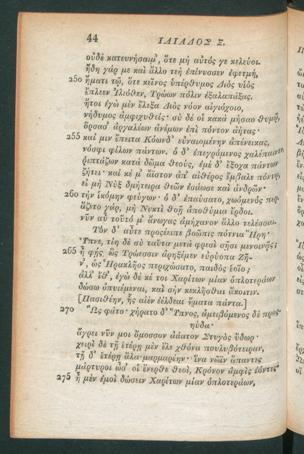 44 ΙΛΙΑΔΟΣ Ξ.
οὐδὲ κατευνήσαιμ', ὅτε μὴ αὐτός γε κελεύοι.
ἤδη γάρ με καὶ ἄλλο τεὴ ἐπίνυσσεν ἐφετμή,
250 ἤματι τῷ, ὅτε κεῖνος ὑπέρθυμος Διὸς υἱὸς
ἔπλεεν Ἰλιόθεν, Τρώων πόλιν ἐξαλαπάξας.
ἤτοι ἐγὼ μὲν ἔλεξα Διὸς νόον αἰγιόχοιο,
νήδυμος ἀμφιχυθείς· σὺ δέ οἱ κακὰ μήσαο θυμῷ,
ὄρσασ' ἀργαλέων ἀνέμων ἐπὶ πόντον ἀήτας·
255 καί μιν ἔπειτα Κόωνδ' εὐναιομένην ἀπένεικας,
νόσφι φίλων πάντων. ὁ δ' ἐπεγρόμενος χαλέπαινε,
ῥιπτάζων κατὰ δῶμα θεούς, ἐμὲ δ' ἔξοχα πάντων
ζήτει· καί κέ μ' ἄϊστον ἀπ' αἰθέρος ἔμβαλε πόντῳ,
εἰ μὴ Νὺξ δμήτειρα θεῶν ἐσάωσε καὶ ἀνδρῶν·
260 τὴν ἱκόμην φεύγων· ὁ δ' ἐπαύσατο, χωόμενός περ·
ἅζετο γάρ, μὴ Νυκτὶ θοῇ ἀποθύμια ἔρδοι.
νῦν αὖ τοῦτό μ' ἄνωγας ἀμήχανον ἄλλο τελέσσαι.
Τὸν δ' αὖτε προσέειπε βοῶπις πότνια Ἥρη·
Ὕπνε, τίη δὲ σὺ ταῦτα μετὰ φρεσὶ σῇσι μενοινᾷς;
265 ἢ φῄς, ὣς Τρώεσσιν ἀρηξέμεν εὐρύοπα Ζῆ-
ν', ὡς Ἡρακλῆος περιχώσατο, παιδὸς ἑοῖο;
ἀλλ' ἴθ', ἐγὼ δέ κέ τοι Χαρίτων μίαν ὁπλοτεράων
δώσω ὀπυιέμεναι, καὶ σὴν κεκλῆσθαι ἄκοιτιν.
[Πασιθέην, ἧς αἰὲν ἐέλδεαι ἤματα πάντα.]
270 Ὣς φάτο· χήρατο δ' Ὕπνος, ἀμειβόμενος δὲ προς-
ηύδα·
ἄγρει νῦν μοι ὄμοσσον ἀάατον Στυγὸς ὕδωρ·
χειρὶ δὲ τῇ ἑτέρῃ μὲν ἕλε χθόνα πουλυβότειραν,
τῇ δ' ἑτέρῃ ἅλα μαρμαρέην· ἵνα νῶϊν ἅπαντες
μάρτυροι ὦσ' οἱ ἔνερθε θεοί, Κρόνον ἀμφὶς ἐόντες·
275 ἦ μὲν ἐμοὶ δώσειν Χαρίτων μίαν ὁπλοτεράων,